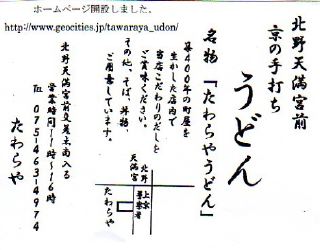 ホームページ開設しました。
http://www.geocities.jp/tawaraya_udon/
北野天満宮前
京の手打ち
うどん
名物「たわらやうどん」
築400年の町屋を
生かした店内で
当店こだわりのだしを
ご賞味ください。
その他、そば、丼物、
ご用意しています。
北野
天満宮
上京
警察署
たわらや
北野天満宮前交差点南入る
営業時間11時〜16時
TEL 075-463-4974
たわらや